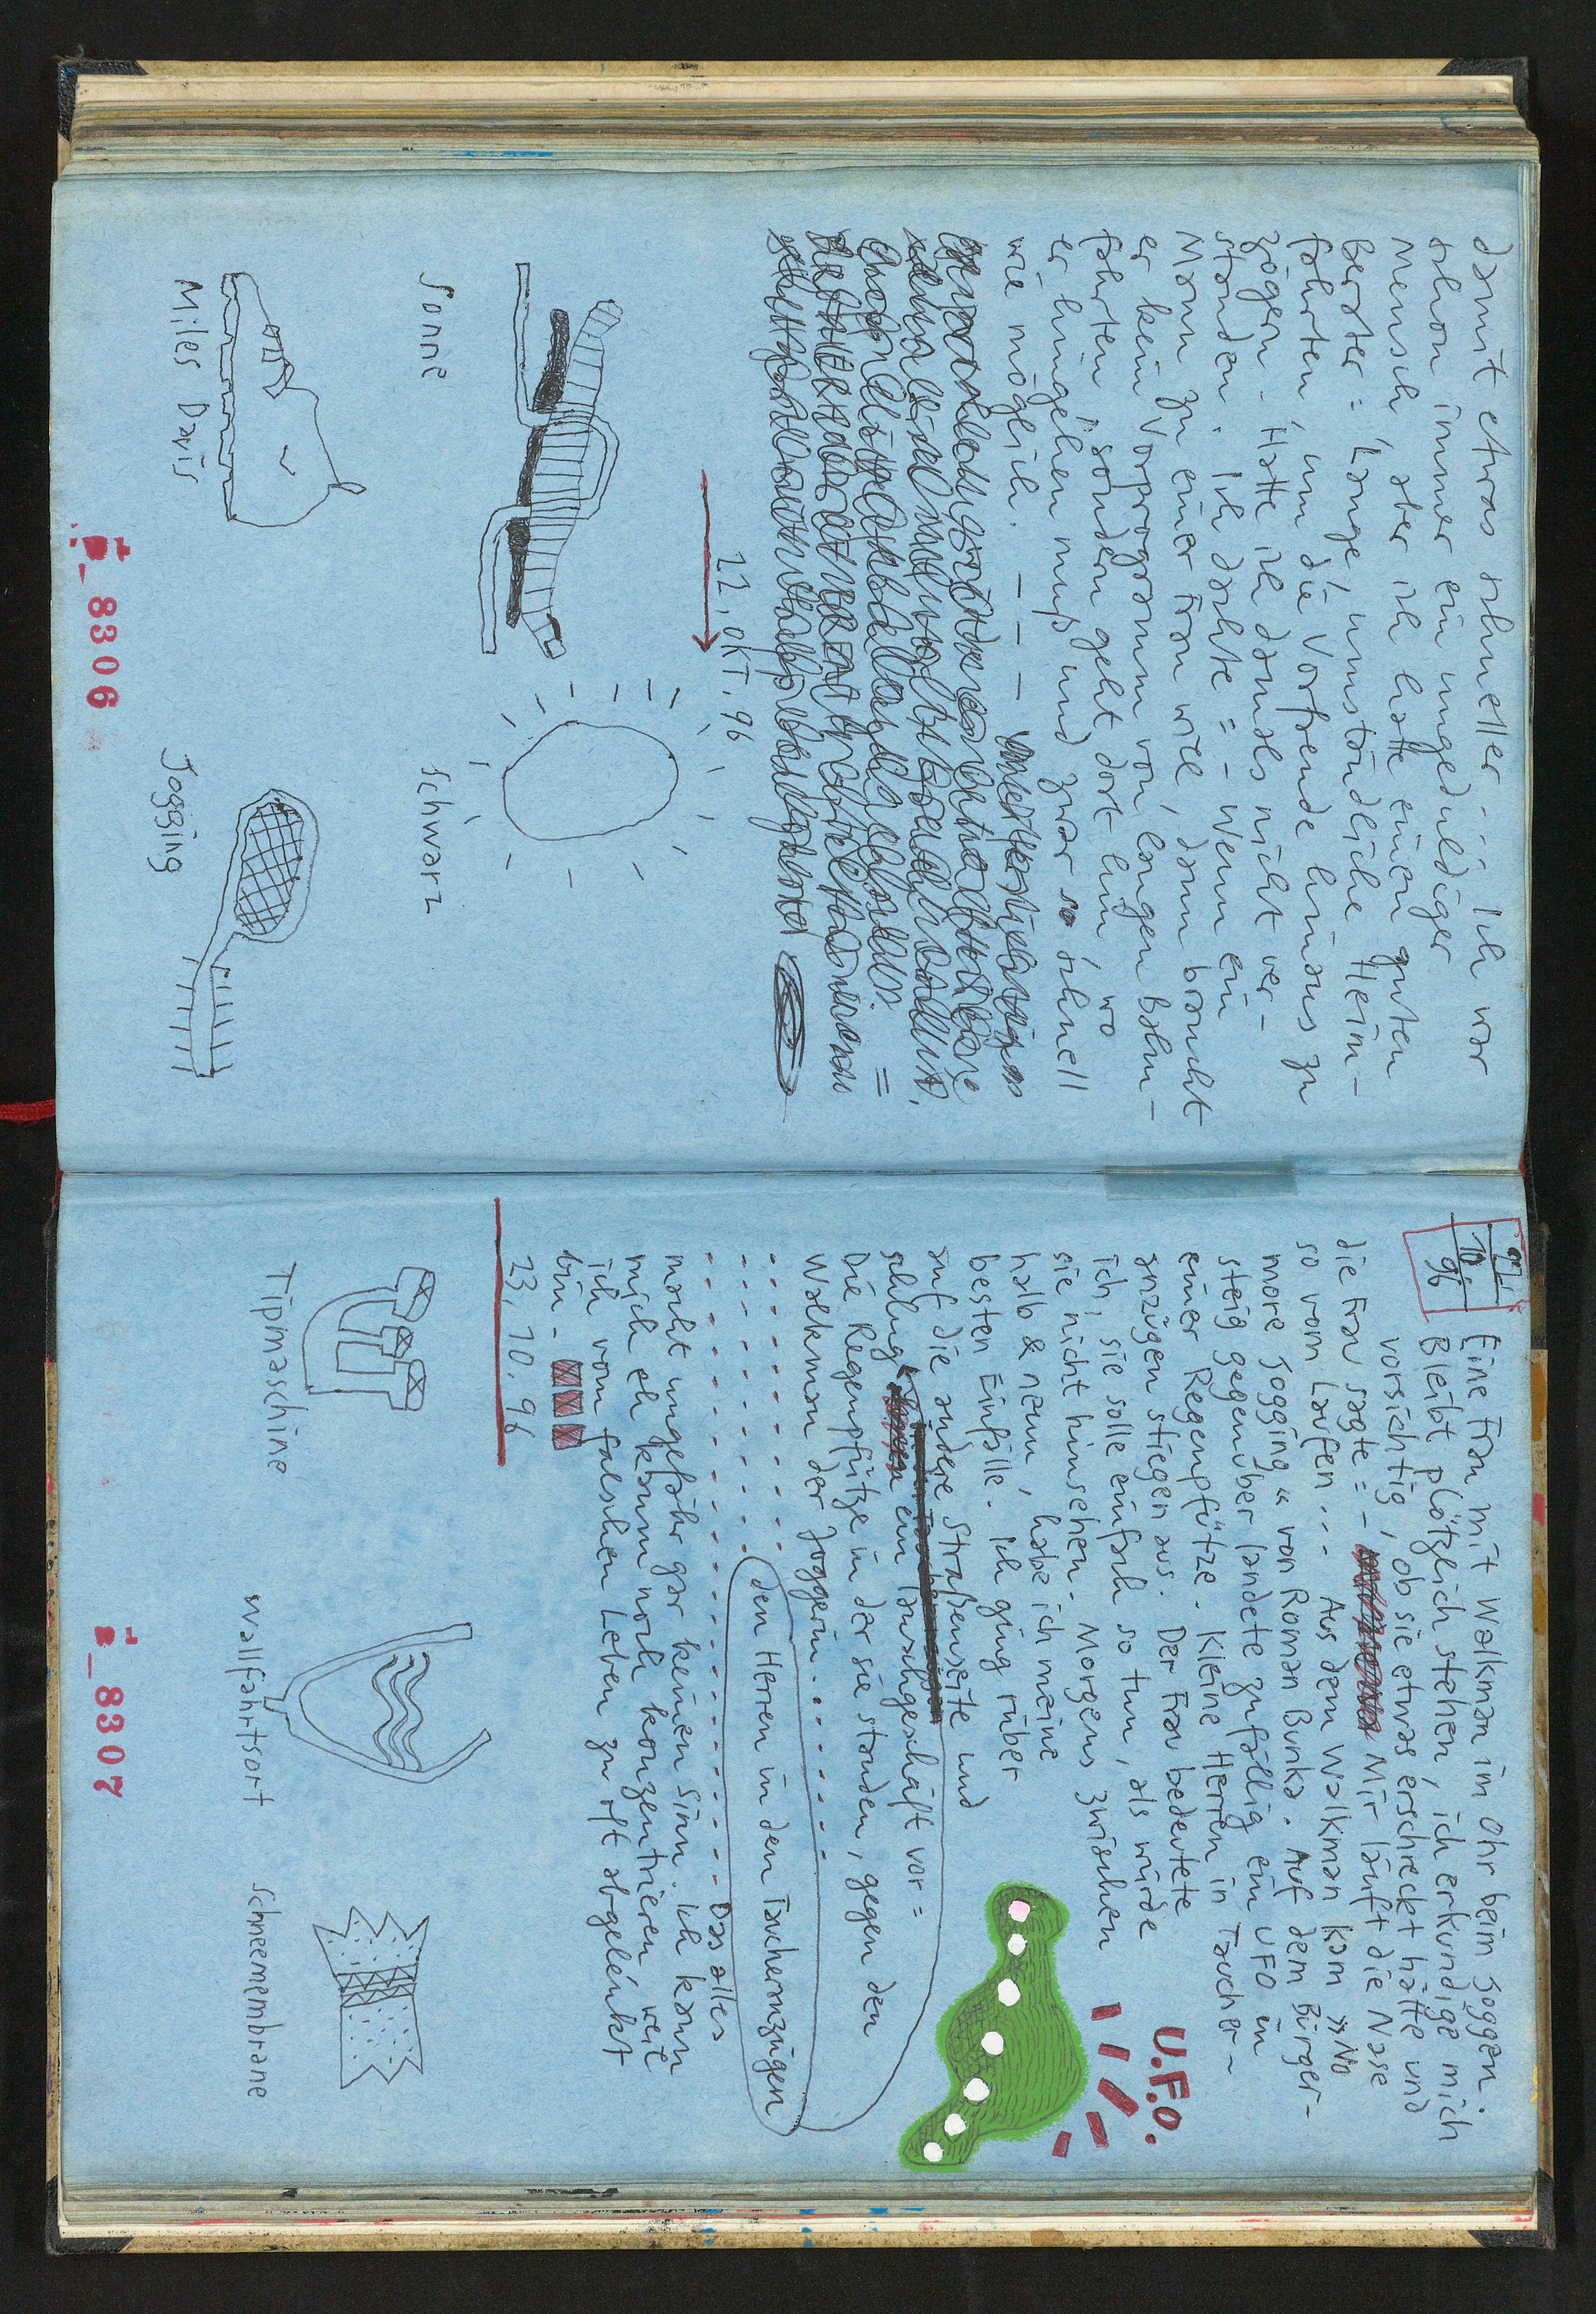 damit etwas schneller... Ich war
schon immer ein ungeduldiger
Mensch, aber ich hatte einen guten
Berater = Lange, umständliche Heim-
fahrten, um die Vorfreude hinaus zu
zögern. Hatte ich damals nicht ver-
standen. Ich dachte = - Wenn ein
Mann zu einer Frau will, dann braucht
er kein Vorprogramm von langen Bahn-
fahrten, sondern geht dort hin, wo
er hingehen muß und zwar so schnell
wie möglich. - - -
22. OKT. 96
Sonne
schwarz
Miles Davis
Jogging
i_8306
22.
10.
96
Eine Frau mit Walkman im Ohr beim Joggen.
Bleibt plötzlich stehen, ich erkundige mich
vorsichtig, ob sie etwas erschreckt hätte und
die Frau sagte = - Mir läuft die Nase
so vom Laufen... Aus dem Walkman kam »No
more Jogging« von Roman Bunka. Auf dem Bürger-
steig gegenüber landete zufällig ein UFO in
einer Regenpfütze. Kleine Herren in Taucher-
anzügen stiegen aus. Der Frau bedeutete
ich, sie solle einfach so tun, als würde
sie nicht hinsehen. Morgens zwischen
halb & neun, habe ich meine
besten Einfälle. Ich ging rüber
auf die andere Straßenseite und
schlug ein Tauschgeschäft vor =
Die Regenpfütze in der sie standen, gegen den
Walkman der Joggerin......
den Herren in den Taucheranzügen
Das alles
macht ungefähr gar keinen Sinn. Ich kann
mich eh kaum noch konzentrieren weil
ich vom falschen Leben zu oft abgelenkt
bin.
23.10.96
U.F.O.
Tipmaschine
Wallfahrtsort
Schneemembrane
i_8307